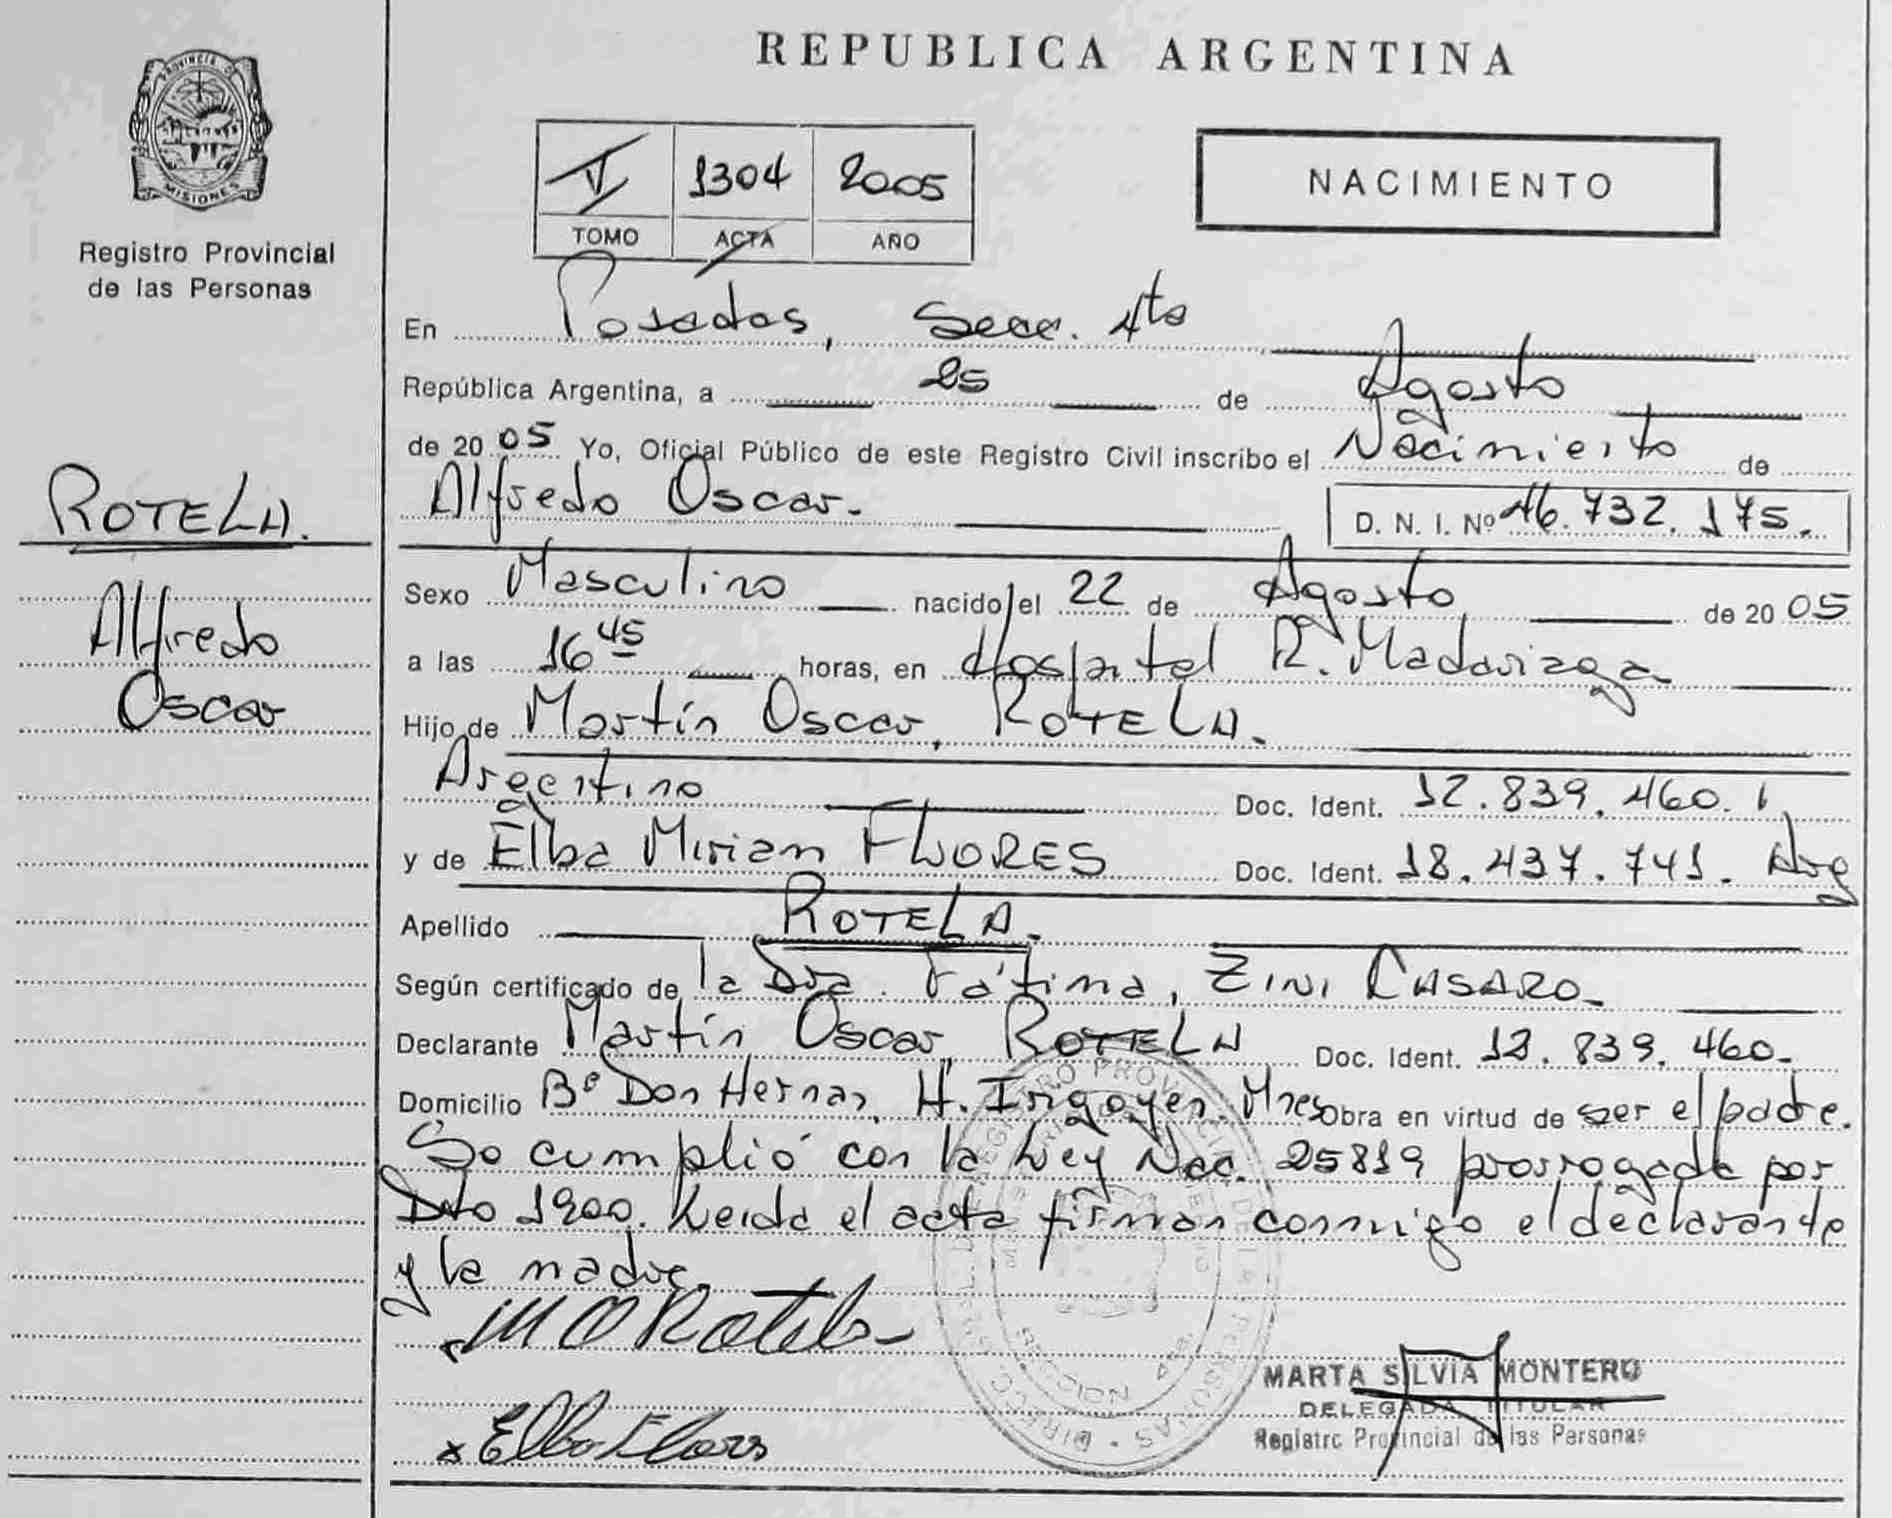 REPUBLICA ARGENTINA
PROVINCIA DE
MISIONES
Registro Provincial
de las Personas
V 1304 2005
TOMO ACTA AÑO
NACIMIENTO
En Posadas, Secc. 4ta
República Argentina, a 25 de Agosto
de 2005 Yo, Oficial Público de este Registro Civil inscribo el Nacimiento de
Alfredo Oscar. D. N. I. Nº 46.732.175.
ROTELA.
Alfredo
Oscar
Sexo Masculino nacido el 22 de Agosto de 2005
a las 16 45 horas, en Hospital R. Madariaga
Hijo de Martín Oscar, ROTELA.
Argentino Doc. Ident. 12.839.460.
y de Elba Mirian FLORES Doc. Ident. 18.437.741. Arg
Apellido ROTELA.
Según certificado de la Dra. Fátima, ZINI CASARO.
Declarante Martín Oscar, ROTELA Doc. Ident. 12.839.460.
Domicilio Bº Don Hernan, H. Irigoyen. Mnes Obra en virtud de ser el padre.
Se cumplió con la Ley Nac. 25819 prorrogada por
Dto 1900. Leída el acta firman conmigo el declarante
y la madre.
M O Rotela
x Elba Flores
MARTA SILVIA MONTERO
DELEGADA TITULAR
Registro Provincial de las Personas